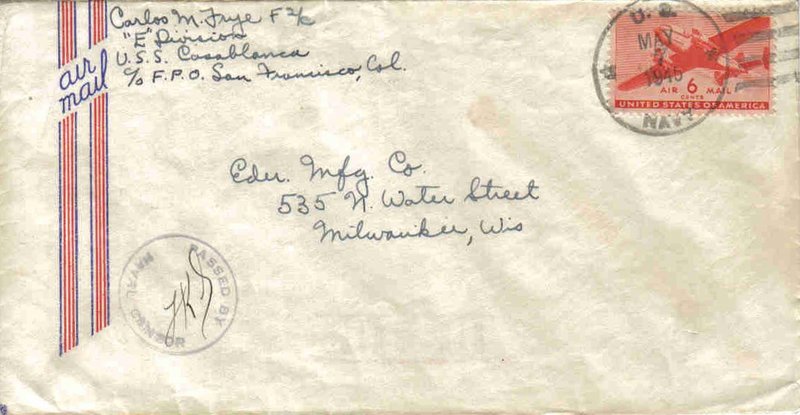 Carlos M. Frye F 2/c
"E" Division
U.S.S. Casablanca
c/o F.P.O. San Francisco, Cal.
air mail
U. S.
MAY
1945
NAVY
AIR 6 MAIL
CENTS
UNITED STATES OF AMERICA
Eder. Mfg. Co.
535 N. Water Street
Milwaukee, Wis
PASSED BY
NAVAL CENSOR